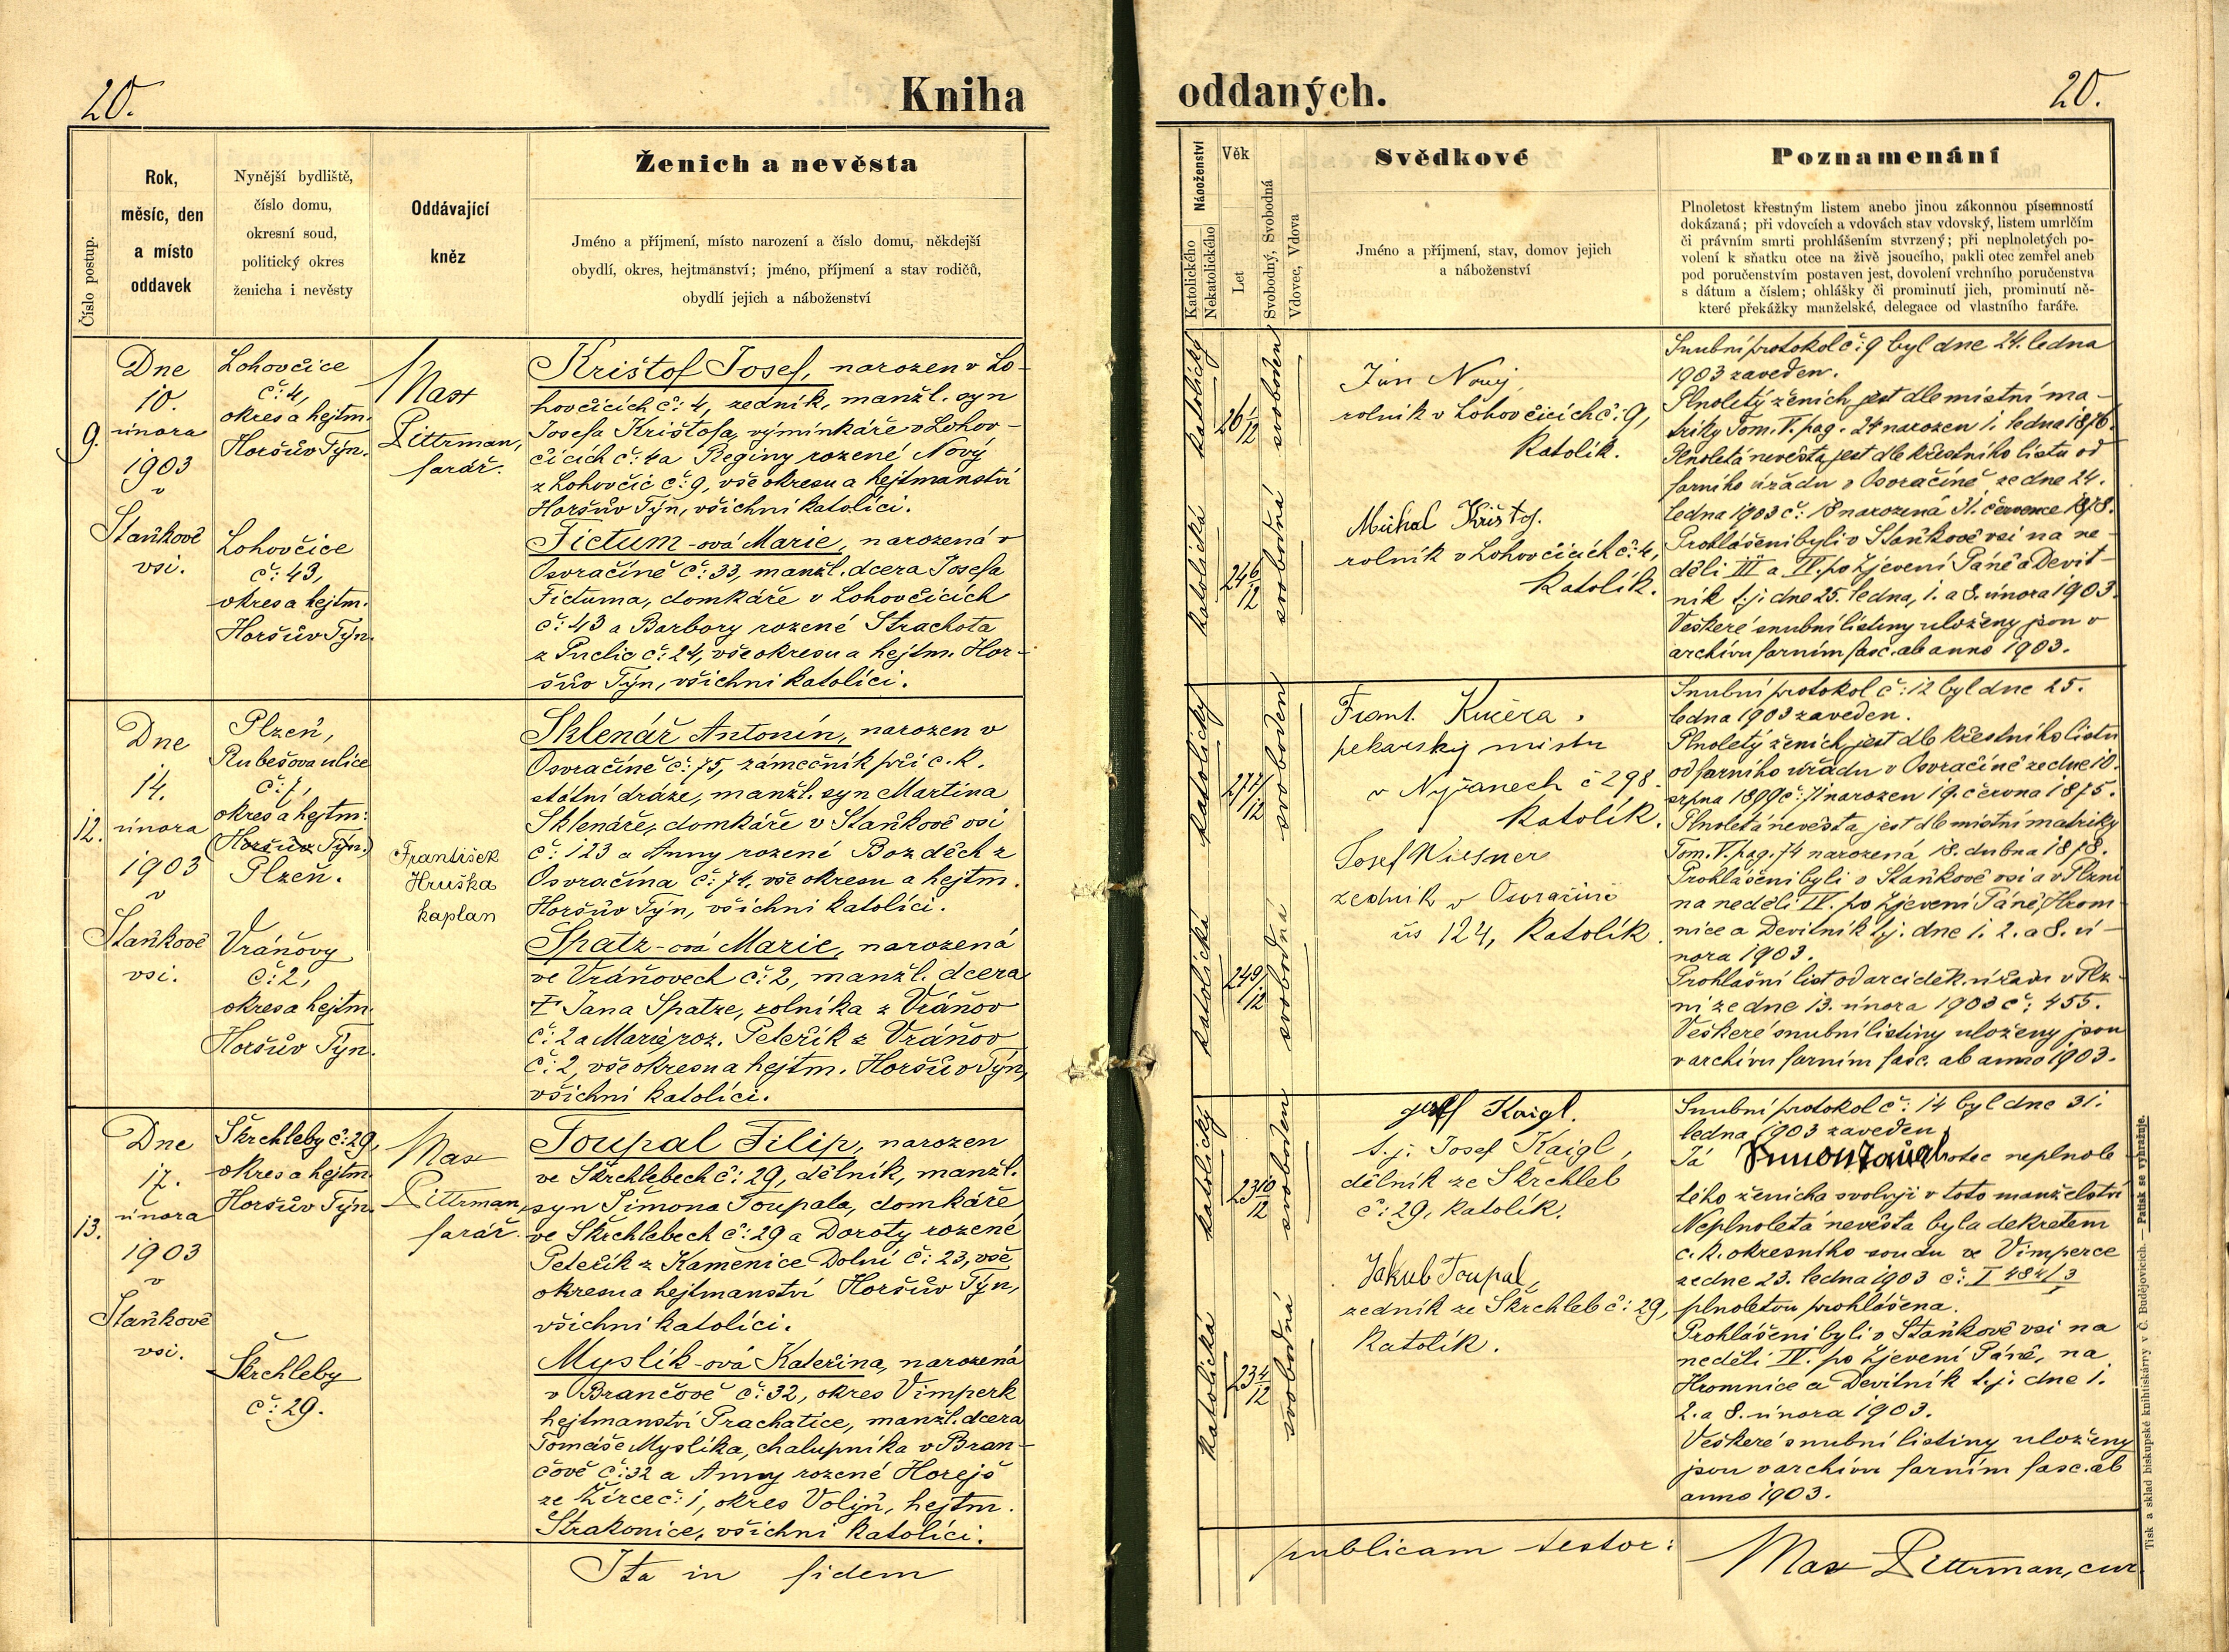 20.
Kniha
Číslo postup.
Rok,
měsíc, den
a místo
oddavek
Nynější bydliště,
číslo domu,
okresní soud,
politický okres
ženicha i nevěsty
Oddávající
kněz
Ženich a nevěsta
Jméno a příjmení, místo narození a číslo domu, někdejší
obydlí, okres, hejtmanství; jméno, příjmení a stav rodičů,
obydlí jejich a náboženství
9.
Dne
10.
února
1903
v
Staňkově
vsi.
Lohovčice
č: 4,
okres a hejtm.
Horšův Týn.
Lohovčice
č: 43,
okres a hejtm.
Horšův Týn.
Max
Pittrman,
farář.
Krištof Josef, narozen v Lo-
hovčicích č: 4, zedník, manžl. syn
Josefa Krištofa, výminkáře v Lohov-
čicích č: 4 a Reginy rozené Nový
z Lohovčic č: 9, vše okresu a hejtmanství
Horšův Týn, všichni katolíci.
Fictum-ová Marie, narozená v
Osvračíně č: 33, manžl. dcera Josefa
Fictuma, domkáře v Lohovčicích
č: 43 a Barbory rozené Strachota
z Puclic č: 24, vše okresu a hejtm. Hor-
šův Týn, všichni katolíci.
12.
Dne
14.
února
1903
v
Staňkově
vsi.
Plzeň,
Rubešova ulice
č: 7,
okres a hejtm:
(Horšův Týn.)
Plzeň.
Vráňovy
č: 2,
okres a hejtm.
Horšův Týn.
František
Hruška
kaplan
Sklenář Antonín, narozen v
Osvračíně č: 75, zámečník při c. k.
státní dráze, manžl. syn Martina
Sklenáře, domkáře v Staňkově vsi
č: 123 a Anny rozené Bozděch z
Osvračína č: 74, vše okresu a hejtm.
Horšův Týn, všichni katolíci.
Spatz-ová Marie, narozená
ve Vráňovech č: 2, manžl. dcera
† Jana Spatze, rolníka z Vráňov
č: 2 a Marie roz. Peteřík z Vráňov
č: 2, vše okresu a hejtm. Horšův Týn,
všichni katolíci.
13.
Dne
17.
února
1903
v
Staňkově
vsi.
Škrchleby č: 29,
okres a hejtm.
Horšův Týn.
Škrchleby
č: 29.
Max
Pittrman,
farář.
Toupal Filip, narozen
ve Škrchlebech č: 29, dělník, manžl.
syn Šimona Toupala, domkáře
ve Škrchlebech č: 29 a Doroty rozené
Peteřík z Kamenice Dolní č: 23, vše
okresu a hejtmanství Horšův Týn,
všichni katolíci.
Myslík-ová Kateřina, narozená
v Brančově č: 32, okres Vimperk
hejtmanství Prachatice, manžl. dcera
Tomáše Myslíka, chalupníka v Bran-
čově č: 32 a Anny rozené Horejš
ze Žírce č: 1, okres Volyň, hejtm.
Strakonice, všichni katolíci.
Ita in fidem
oddaných.
20.
Náboženství
Katolického
Nekatolického
Věk
Let
Svobodný, Svobodná
Vdovec, Vdova
Svědkové
Jméno a příjmení, stav, domov jejich
a náboženství
Poznamenání
Plnoletost křestným listem anebo jinou zákonnou písemností
dokázaná; při vdovcích a vdovách stav vdovský, listem umrlčím
či právním smrti prohlášením stvrzený; při neplnoletých po-
volení k sňatku otce na živě jsoucího, pakli otec zemřel aneb
pod poručenstvím postaven jest, dovolení vrchního poručenstva
s dátum a číslem; ohlášky či prominutí jich, prominutí ně-
které překážky manželské, delegace od vlastního faráře.
katolický
26 1/12
svoboden
katolická
24 6/12
svobodná
Jan Nový,
rolník v Lohovčicích č: 9,
katolík.
Michal Krištof.
rolník v Lohovčicích č: 4,
katolík.
Snubní protokol č: 9 byl dne 24. ledna
1903 zaveden.
Plnoletý ženich jest dle místní ma-
triky Tom. V. pag. 24 narozen 1. ledna 1876.
Plnoletá nevěsta jest dle křestního listu od
farního úřadu v Osvračíně ze dne 24.
ledna 1903 č: 18 narozená 31. července 1878.
Prohlášeni byli v Staňkově vsi na ne-
děli III a IV. po Zjevení Páně a Devít-
ník t. j. dne 25. ledna, 1. a 8. února 1903.
Veškeré snubní listiny uloženy jsou v
archivu farním fasc. ab anno 1903.
katolický
27 7/12
svoboden
katolická
24 9/12
svobodná
Frant. Kučera,
pekarský mistr
v Nýřanech č 298.
katolík.
Josef Wiesner
zedník v Osvračíně
čís 124, katolík.
Snubní protokol č: 12 byl dne 25.
ledna 1903 zaveden.
Plnoletý ženich, jest dle křestního listu
od farního úřadu v Osvračíně ze dne 10.
srpna 1899 č: 71 narozen 19. června 1875.
Plnoletá nevěsta jest dle místní matriky
Tom. V. pag. 74 narozená 18. dubna 1878.
Prohlášeni byli v Staňkově vsi a v Plzni
na neděli IV. po Zjevení Páně, Hrom-
nice a Devítník t. j. dne 1. 2. a 8. ú-
nora 1903.
Prohlašní list od arciděk. úřadu v Plz-
ni ze dne 13. února 1903 č: 455.
Veškeré snubní listiny uloženy jsou
v archivu farním fasc. ab anno 1903.
katolický
23 10/12
svoboden
katolická
23 4/12
svobodná
Josef Kaigl.
t. j. Josef Kaigl,
dělník ze Škrchleb
č: 29, katolík.
Jakub Toupal,
zedník ze Škrchleb č: 29,
katolík.
Snubní protokol č: 14 byl dne 31.
ledna 1903 zaveden.
Já otec neplnole
tého ženicha svoluji v toto manželství
Neplnoletá nevěsta byla dekretem
c. k. okresního soudu ve Vimperce
ze dne 23. ledna 1903 č: I 484/3
plnoletou prohlášena.
Prohlášeni byli v Staňkově vsi na
neděli IV. po Zjevení Páně, na
Hromnice a Devítník t. j. dne 1.
2. a 8. února 1903.
Veškeré snubní listiny uloženy
jsou v archivu farním fasc. ab
anno 1903.
publicam testor:
Max Pittrman, cur.
Tisk a sklad biskupské knihtiskárny v Č. Budějovicích. — Patisk se vyhražuje.